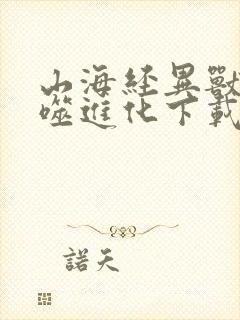 山海経異獸
噬進化下載
諾天